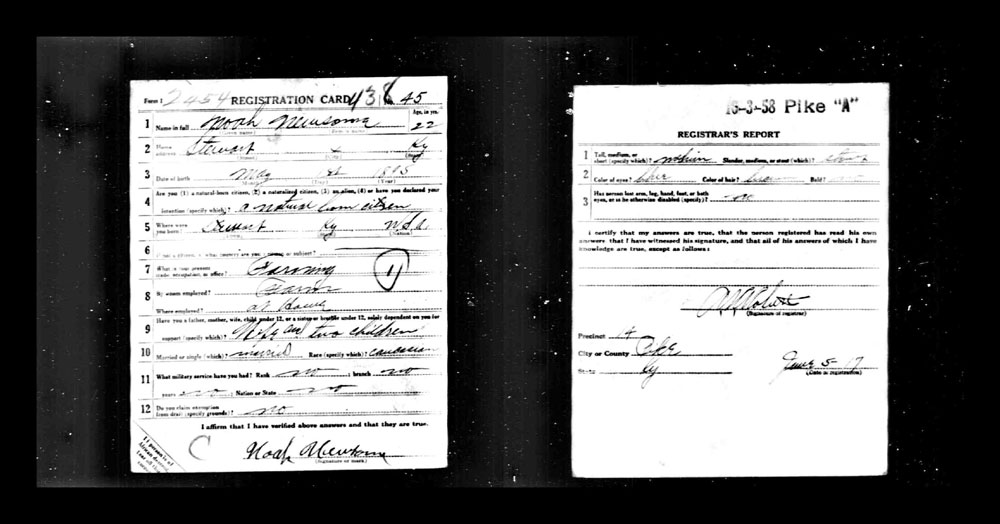 Form 1 2454 REGISTRATION CARD 438 45
1 Name in full Noah Newsome Age, in yrs. 22
(Given name) (Family name)
2 Home address Stewart Ky
3 Date of birth May 1895
(Month) (Day) (Year)
4 Are you (1) a natural-born citizen, (2) a naturalized citizen, (3) an alien, (4) or have you declared your
intention (specify which)? a natural born citizen
5 Where were you born? Stewart Ky U.S.A.
(Nation)
6 If not a citizen, of what country are you a citizen or subject?
7 What is your present trade, occupation, or office? Farming 11
8 By whom employed? Farm
Where employed? at Home
9 Have you a father, mother, wife, child under 12, or a sister or brother under 12, solely dependent on you for
support (specify which)? Wife and two children
10 Married or single (which)? married Race (specify which)? caucasian
11 What military service have you had? Rank no ; branch no
years no ; Nation or State no
12 Do you claim exemption from draft (specify grounds)? no
I affirm that I have verified above answers and that they are true.
C Noah Newsome
(Signature or mark)
If person is of African
16-3-58 Pike "A"
REGISTRAR'S REPORT
1 Tall, medium, or short (specify which)? medium Slender, medium, or stout (which)? stout
2 Color of eyes? blue Color of hair? brown Bald?
3 Has person lost arm, leg, hand, foot, or both eyes, or is he otherwise disabled (specify)? no
I certify that my answers are true, that the person registered has read his own
answers that I have witnessed his signature, and that all of his answers of which I have
knowledge are true, except as follows:
(Signature of registrar)
Precinct 14
City or County Pike
State Ky June 5-17
(Date of registration)